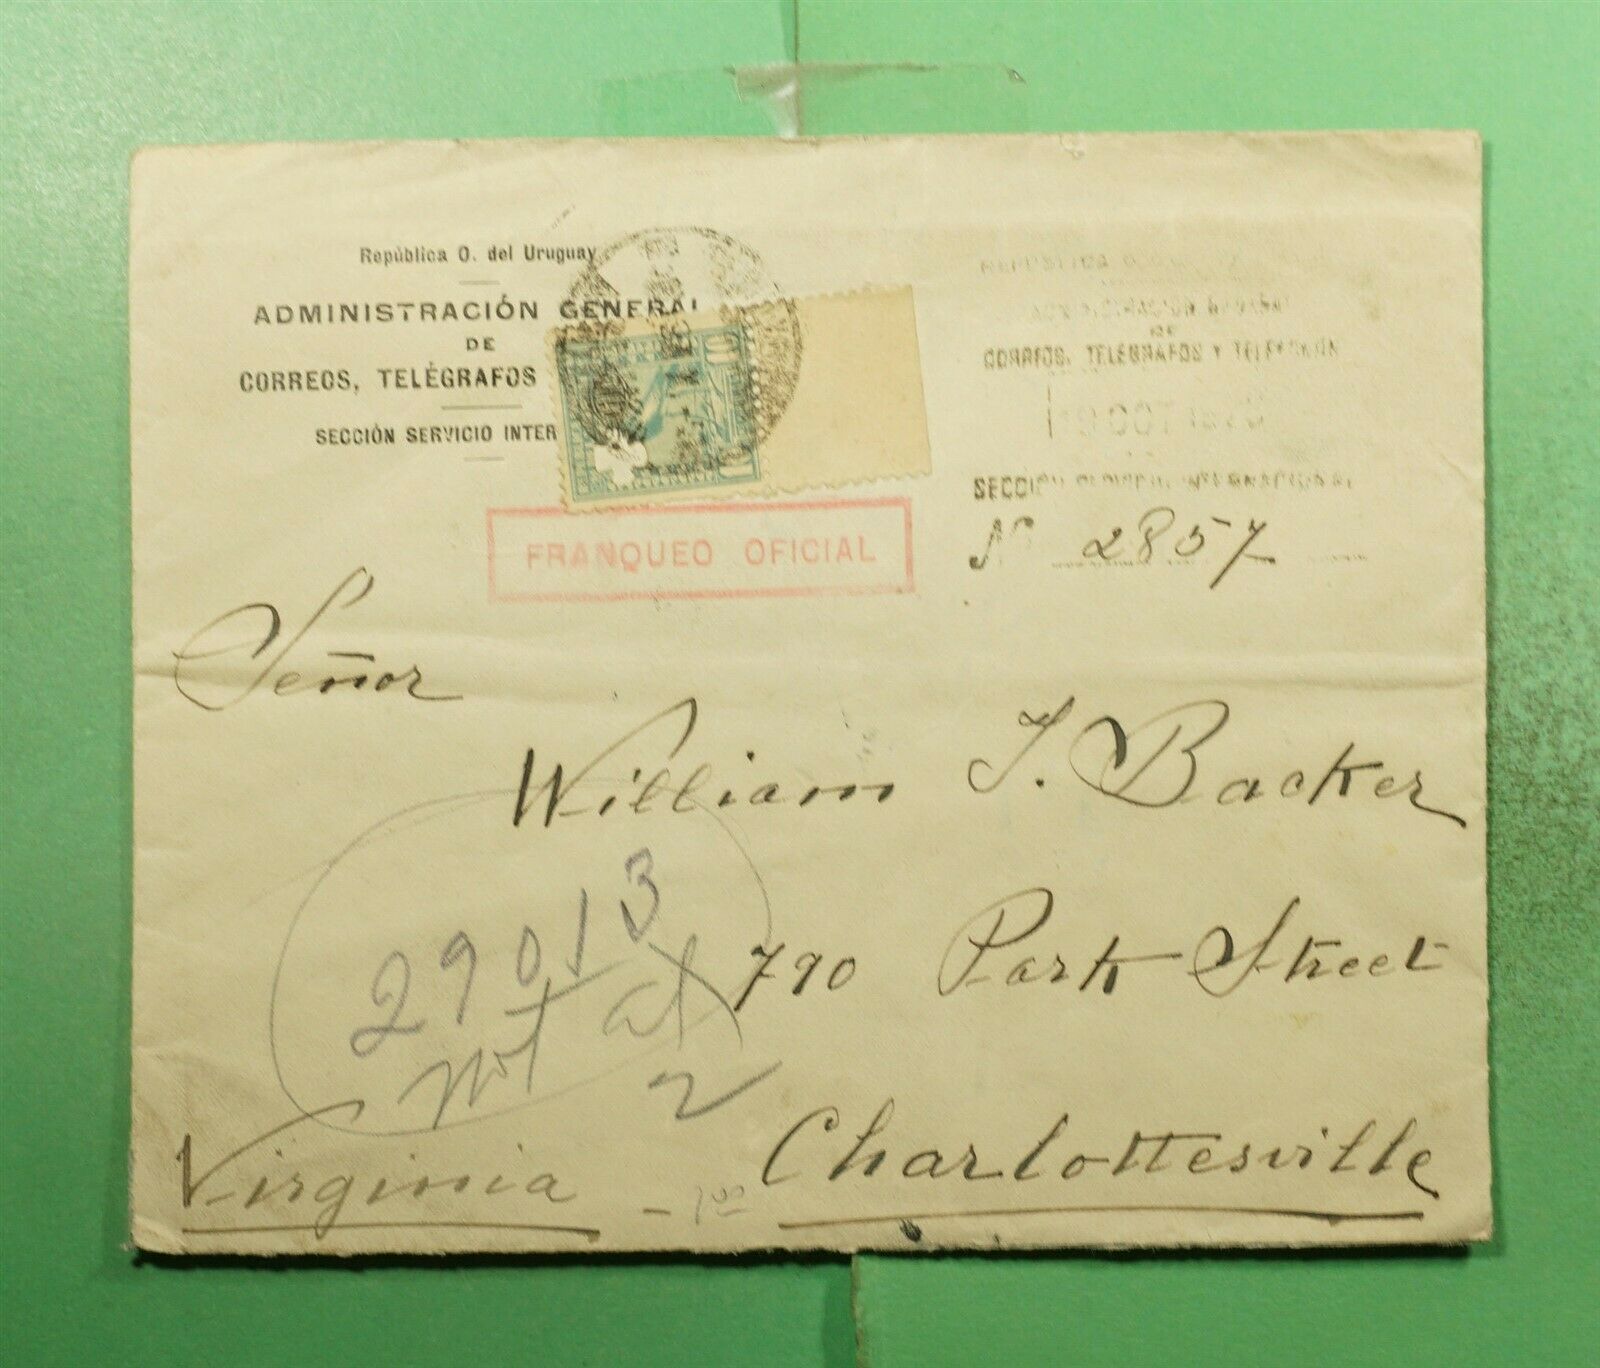 República O. del Uruguay
ADMINISTRACIÓN GENERAL
DE
CORREOS, TELÉGRAFOS
SECCIÓN SERVICIO INTER
REPÚBLICA O.
ADMINISTRACIÓN GENERAL
DE
CORREOS, TELÉGRAFOS Y TELÉFONOS
OCT
SECCIÓN SERVICIO INTERNACIONAL
Nº 2857
FRANQUEO OFICIAL
Señor
William T. Backer
790 Park Street
Charlottesville
Virginia
29013
not at
2